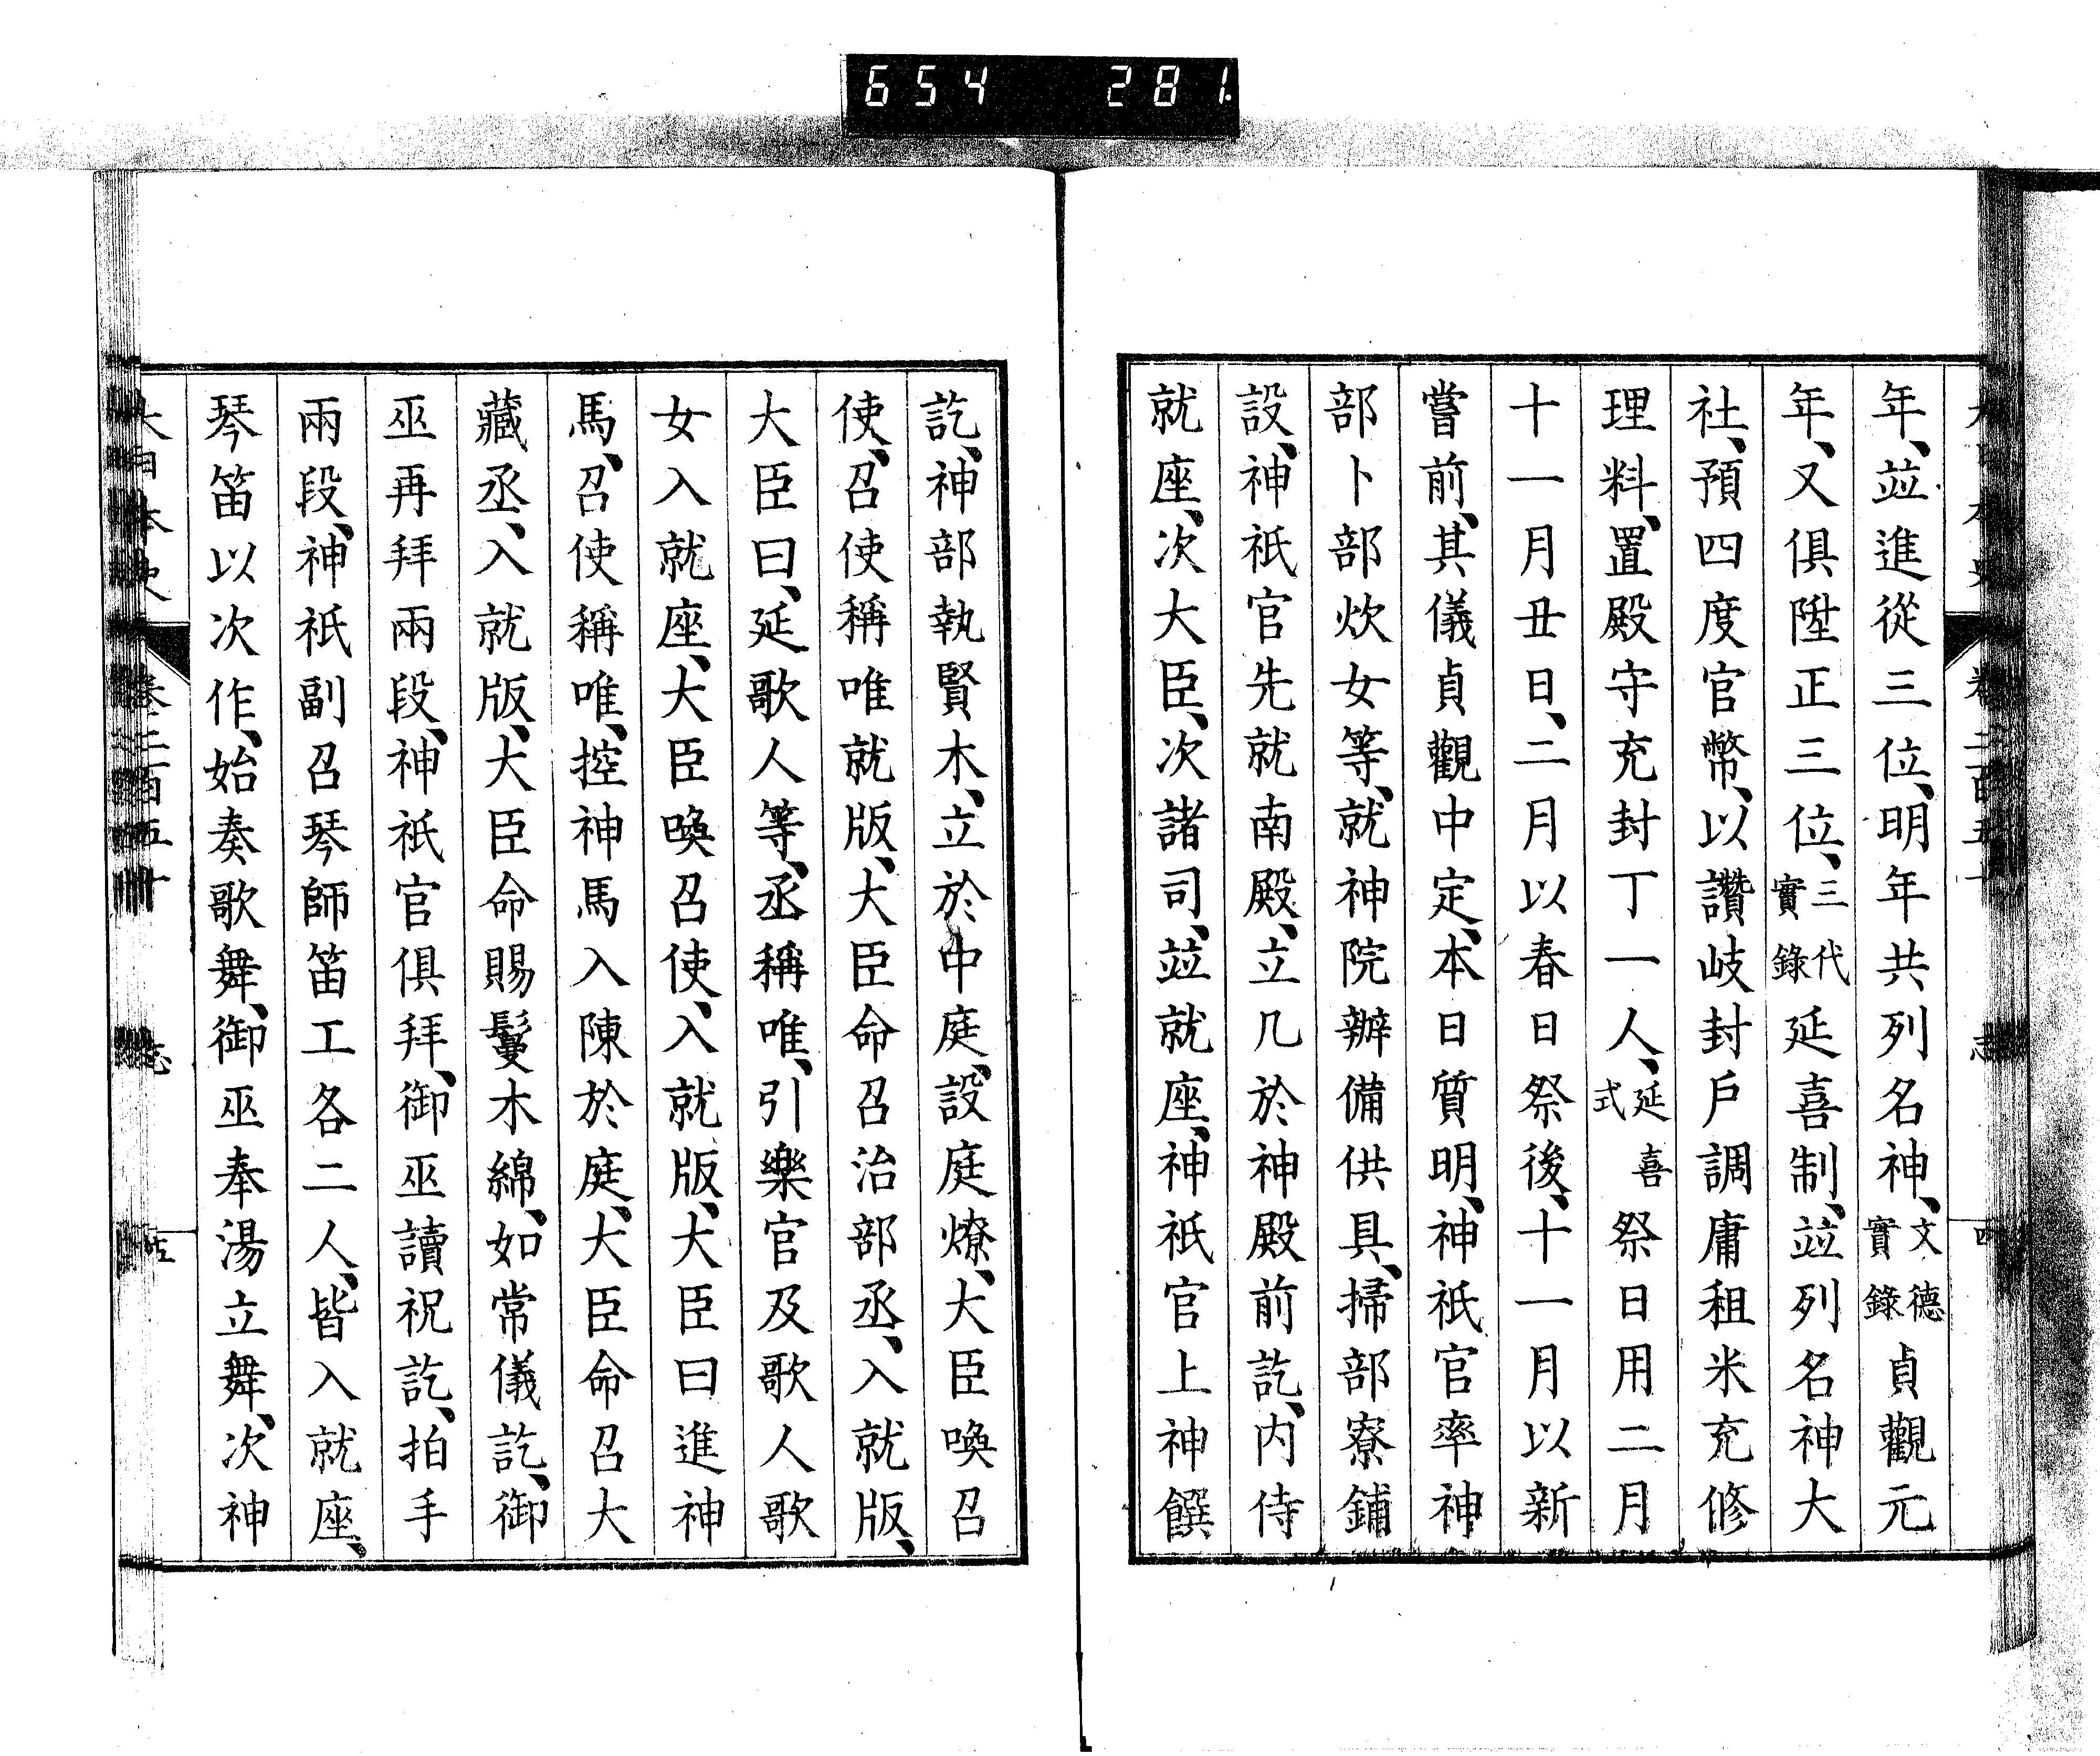 654 281
年、竝進從三位、明年共列名神、文德實錄貞觀元
年、又俱陞正三位、三代實錄延喜制、竝列名神大
社、預四度官幣、以讚岐封戶調庸租米充修
理料、置殿守充封丁一人、延喜式祭日用二月
十一月丑日、二月以春日祭後、十一月以新
嘗前、其儀貞觀中定、本日質明、神祇官率神
部卜部炊女等、就神院辦備供具、掃部寮鋪
設、神祇官先就南殿、立几於神殿前訖、內侍
就座、次大臣、次諸司、竝就座、神祇官上神饌
訖、神部執賢木、立於中庭、設庭燎、大臣喚召
使、召使稱唯就版、大臣命召治部丞、入就版、
大臣曰、延歌人等、丞稱唯、引樂官及歌人歌
女入就座、大臣喚召使、入就版、大臣曰進神
馬、召使稱唯、控神馬入陳於庭、大臣命召大
藏丞、入就版、大臣命賜鬘木綿、如常儀訖、御
巫再拜兩段、神祇官俱拜、御巫讀祝訖、拍手
兩段、神祇副召琴師笛工各二人、皆入就座、
琴笛以次作、始奏歌舞、御巫奉湯立舞、次神
大日本史 卷二百五十 志 五